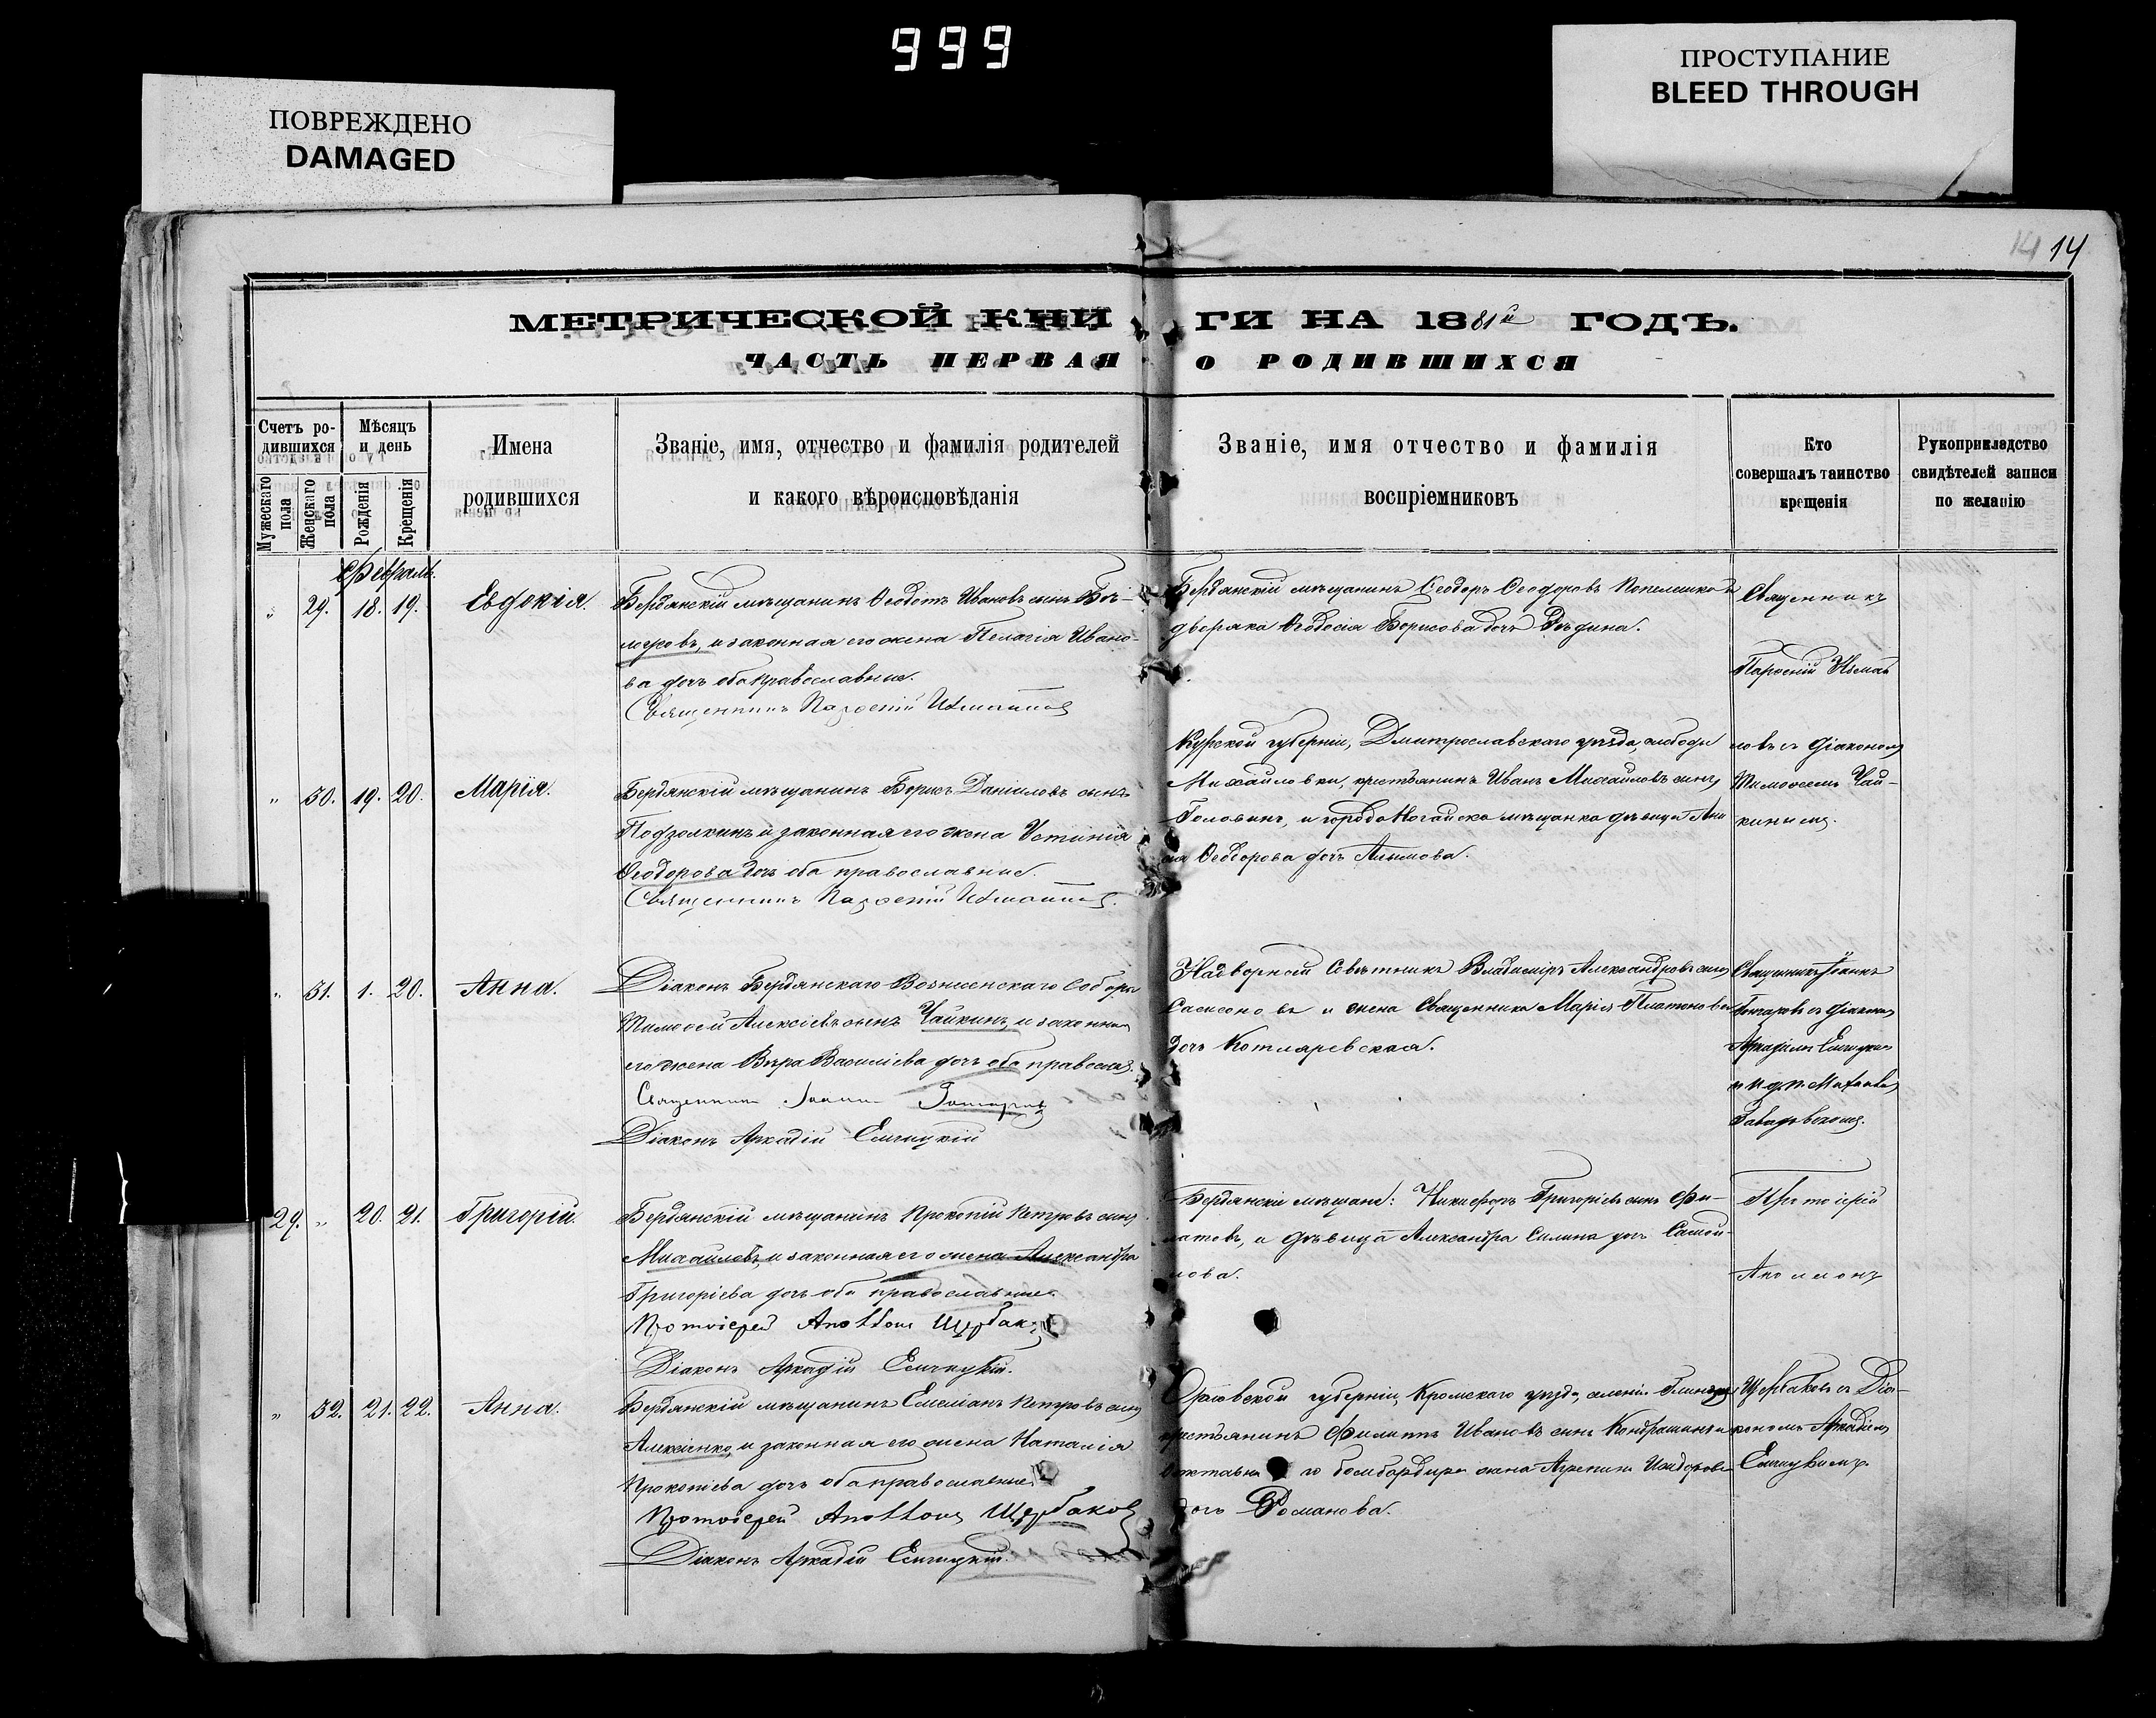 999
ПОВРЕЖДЕНО
DAMAGED
ПРОСТУПАНИЕ
BLEED THROUGH
14 14
МЕТРИЧЕСКОЙ КНИГИ НА 1881й ГОДЪ.
ЧАСТЬ ПЕРВАЯ О РОДИВШИХСЯ
Счетъ родившихся
Мужескаго пола
Женскаго пола
Мѣсяцъ и день
Рожденія
Крещенія
Имена
родившихся
Званіе, имя, отчество и фамилія родителей
и какого вѣроисповѣданія
Званіе, имя отчество и фамилія
воспріемниковъ
Кто
совершалъ таинство
крещенія
Рукоприкладство
свидѣтелей записи
по желанію
Февраль.
" 29. 18. 19. Евдокія.
Бердянскій мѣщанинъ Ѳеодотъ Ивановъ сынъ
и законная его жена Пелагія Ивано-
ва дочь оба православные.
Священникъ Парѳеній
Бердянскій мѣщанинъ Ѳеодоръ Ѳеодоровъ
дворяка Ѳеодосія Борисова дочь
Священникъ
Парѳеній
" 30. 19. 20. Марія.
Бердянскій мѣщанинъ Борисъ Даніиловъ сынъ
Подзолкинъ и законная его жена Устинія
Ѳеодорова дочь оба православные.
Священникъ Парѳеній
Курской губерніи, Дмитрославскаго уѣзда, слободы
Михайловки, крестьянинъ Иванъ Михаиловъ сынъ
Головинъ, и города Ногайска мѣщанка дѣвица
Ѳеодорова дочь
новъ съ діакономъ
Тимоѳеемъ Чай-
кинымъ.
" 31. 1. 20. Анна.
Діаконъ Бердянскаго Вознесенскаго Собора
Тимоѳей Алексіевъ сынъ Чайкинъ, и законная
его жена Вѣра Василіева дочь оба православ.
Священникъ Іоаннъ Гончаровъ
Діаконъ Аркадій Емчицкій
Надворный Совѣтникъ Владиміръ Александровъ сынъ
Самсоновъ и жена Священника Марія Платонова
дочь Котляревская.
Священникъ Іоаннъ
Гончаровъ съ діакономъ
Аркадіемъ Емчицкимъ
29. " 20. 21. Григорій.
Бердянскій мѣщанинъ Прокопій Петровъ сынъ
Михаиловъ, и законная его жена Александра
Григоріева дочь оба православные.
Протоіерей Аполлонъ Щербаковъ
Діаконъ Аркадій Емчицкій.
Бердянскіе мѣщане: Никифоръ Григоріевъ сынъ Фи-
латовъ, и дѣвица Александра Силина дочь Самой-
лова.
Протоіерей
Аполлонъ
" 32. 21. 22. Анна.
Бердянскій мѣщанинъ Емеліанъ Петровъ сынъ
Алексіенко, и законная его жена Наталія
Прокопіева дочь оба православные.
Протоіерей Аполлонъ Щербаковъ
Діаконъ Аркадій Емчицкій.
Орловской губерніи, Кромскаго уѣзда, селенія
крестьянинъ Филиппъ Ивановъ сынъ Кондрашинъ и
го бомбардира жена Агрепина Исидорова
дочь Романова.
Щербаковъ съ Діа-
кономъ Аркадіемъ
Емчицкимъ.